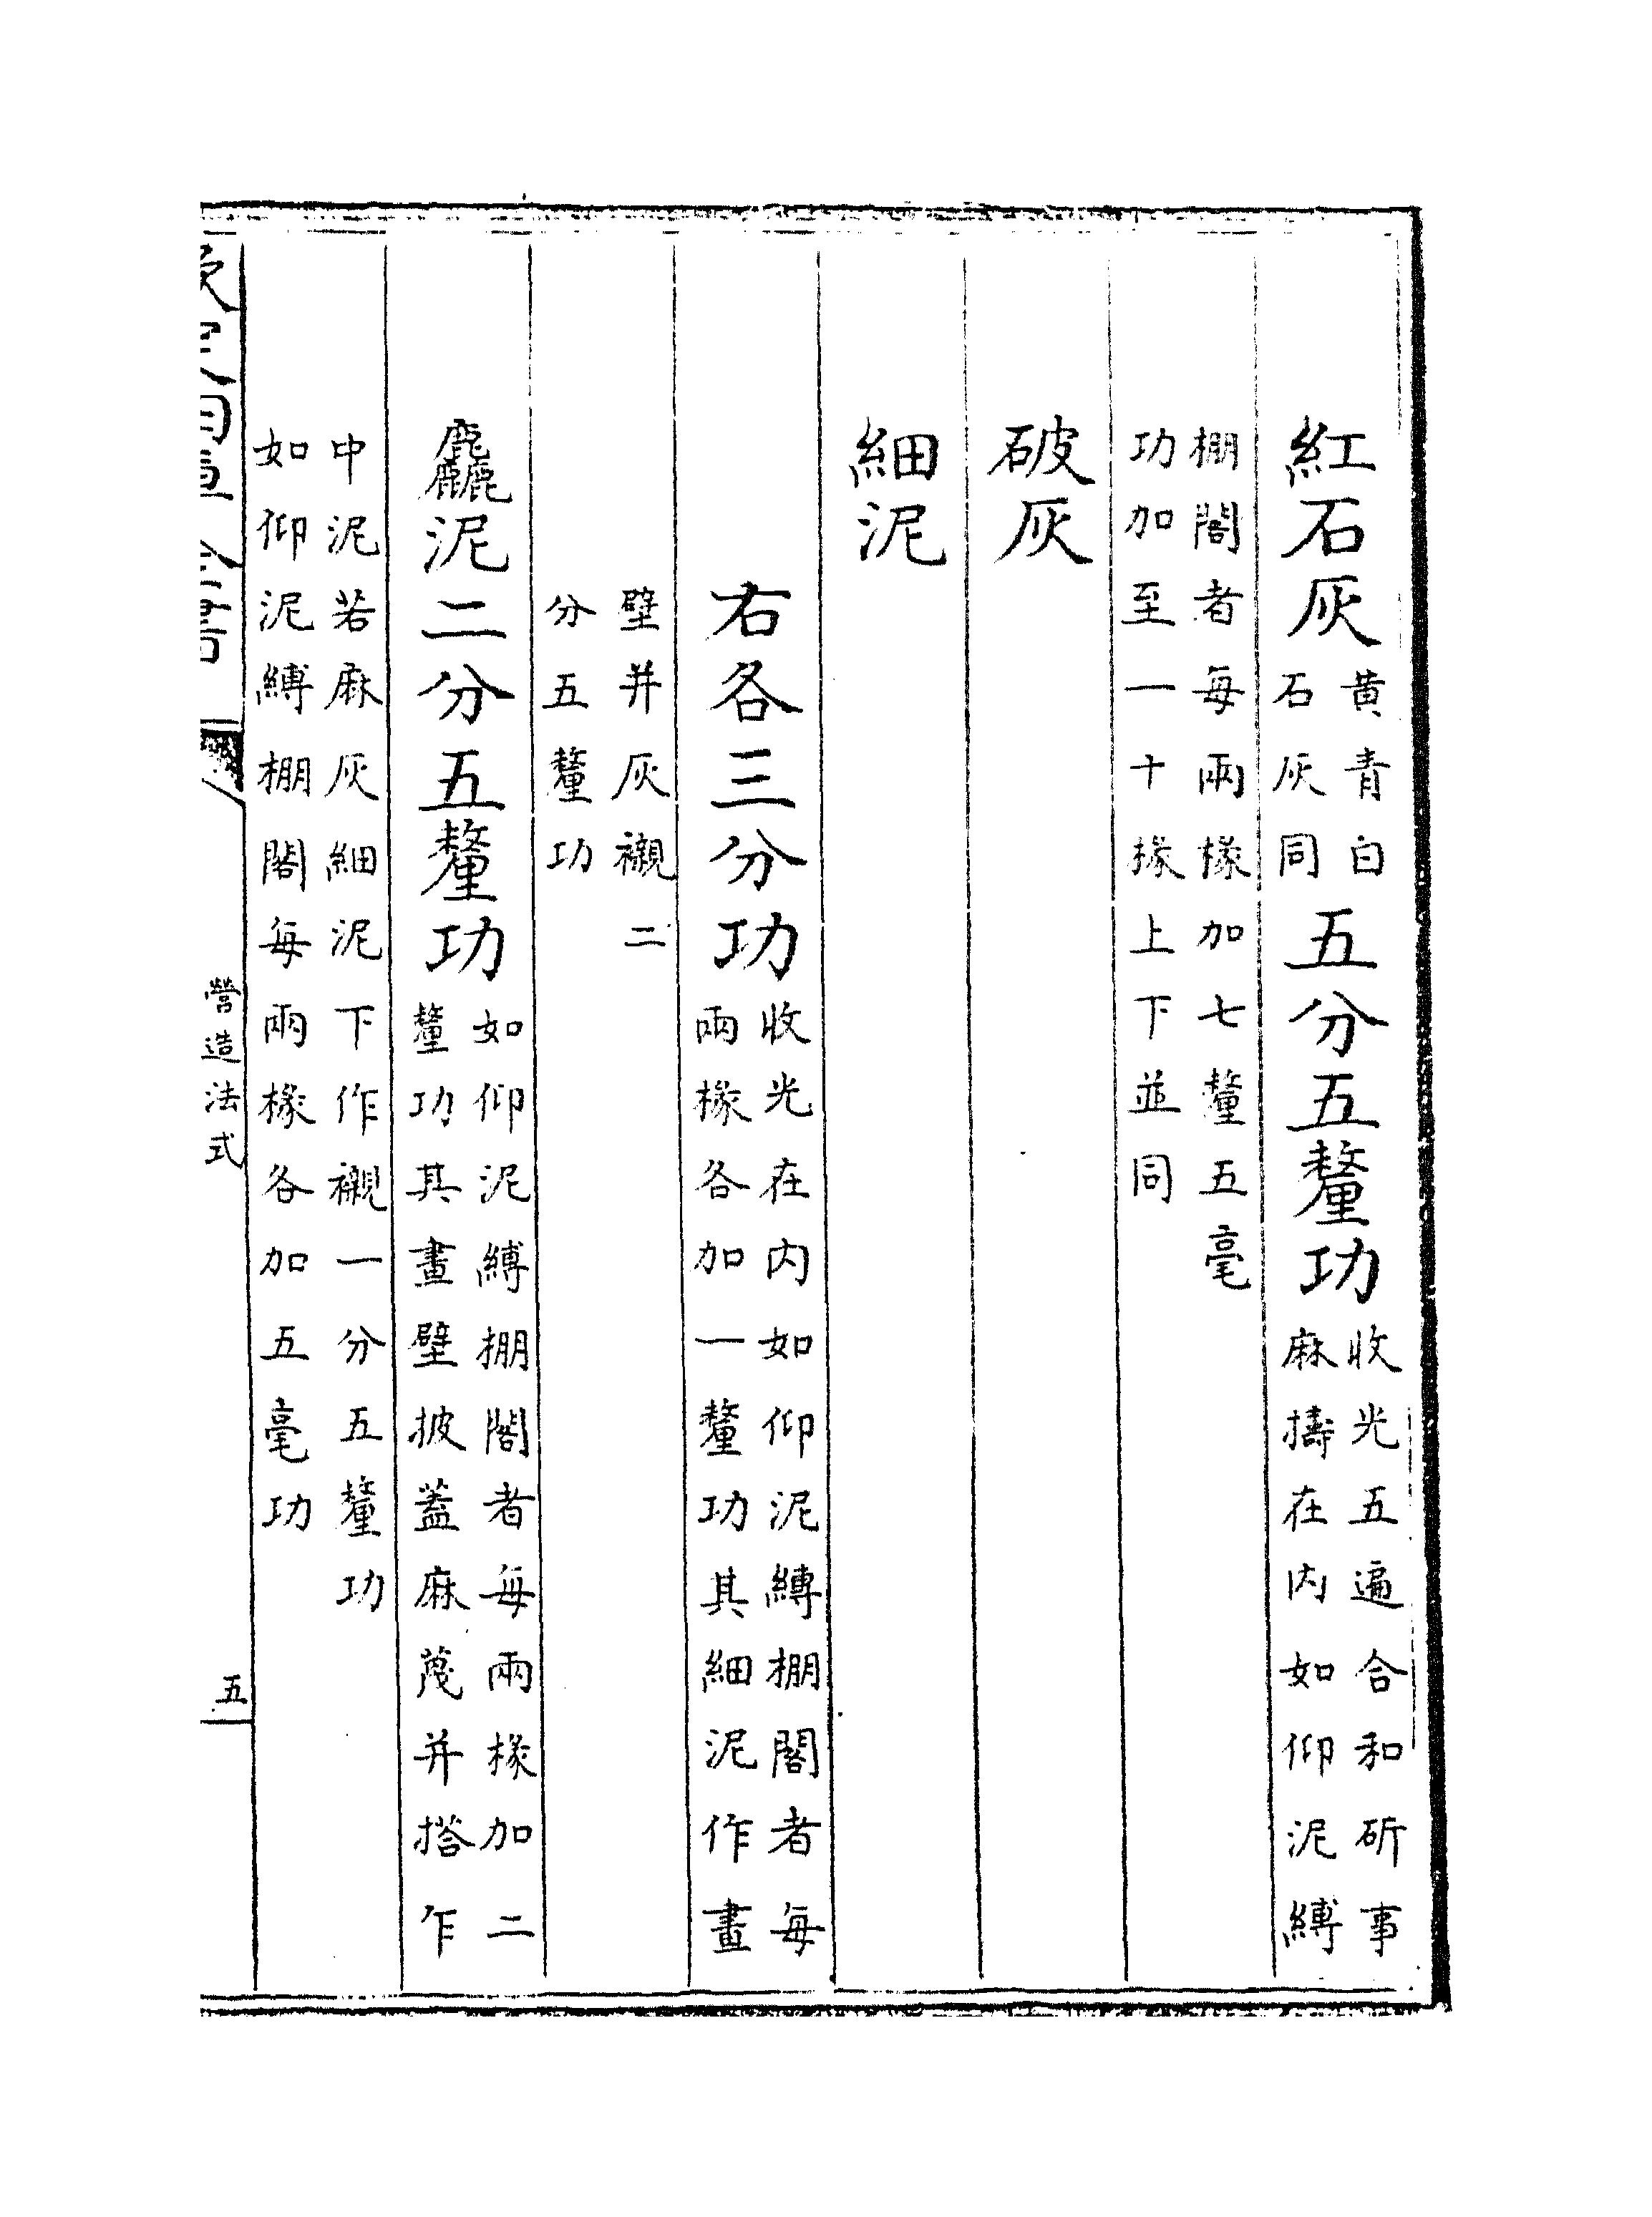 紅石灰黄青白石灰同五分五釐功收光五遍合和斫事麻擣在内如仰泥縛
棚閣者每兩椽加七釐五毫功加至一十椽上下並同
破灰
細泥
右各三分功收光在内如仰泥縛棚閣者每兩椽各加一釐功其細泥作畫
壁并灰襯二分五釐功
麤泥二分五釐功如仰泥縛棚閣者每兩椽加二釐功其畫壁披蓋麻篾并搭乍
中泥若麻灰細泥下作襯一分五釐功如仰泥縛棚閣每兩椽各加五毫功
營造法式
五